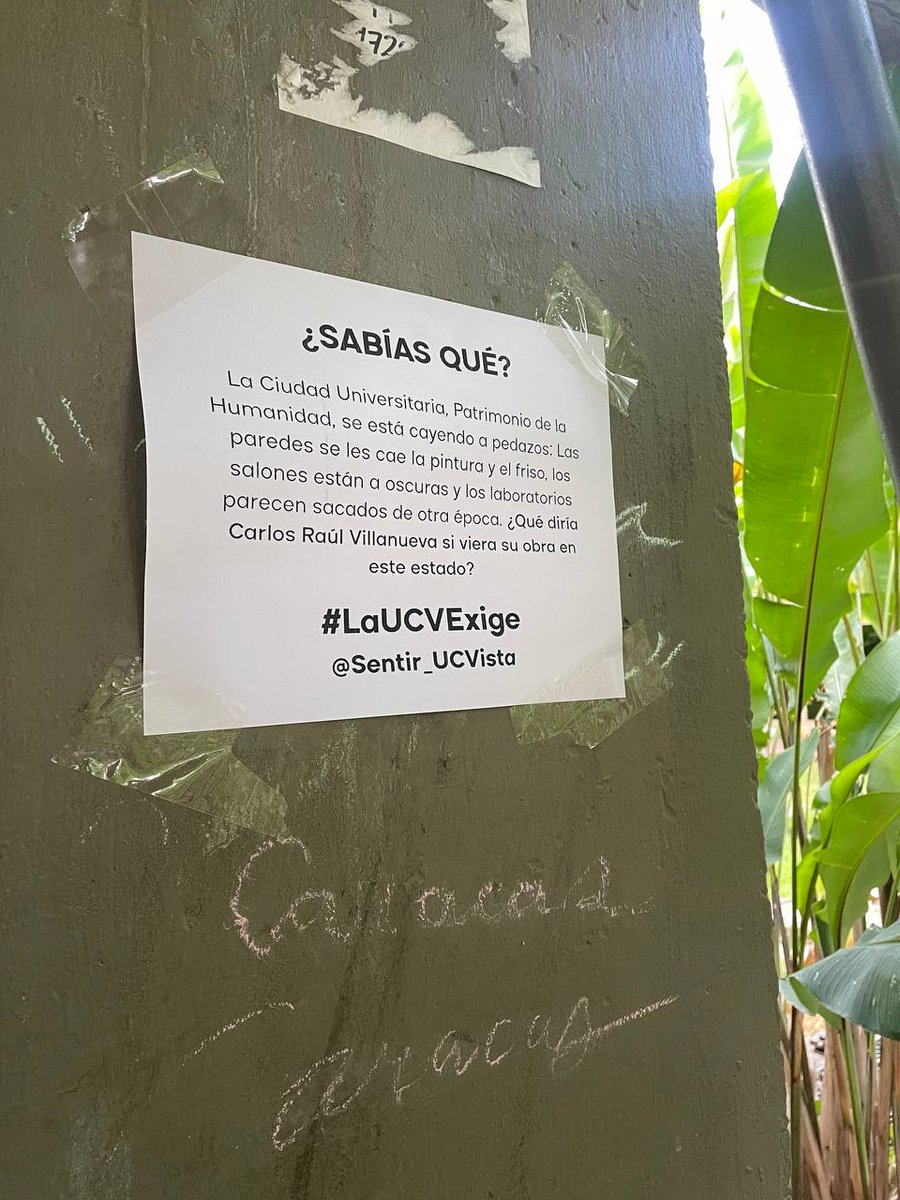 172
¿SABÍAS QUÉ?
La Ciudad Universitaria, Patrimonio de la
Humanidad, se está cayendo a pedazos: Las
paredes se les cae la pintura y el friso, los
salones están a oscuras y los laboratorios
parecen sacados de otra época. ¿Qué diría
Carlos Raúl Villanueva si viera su obra en
este estado?
#LaUCVExige
@Sentir_UCVista
Caracas